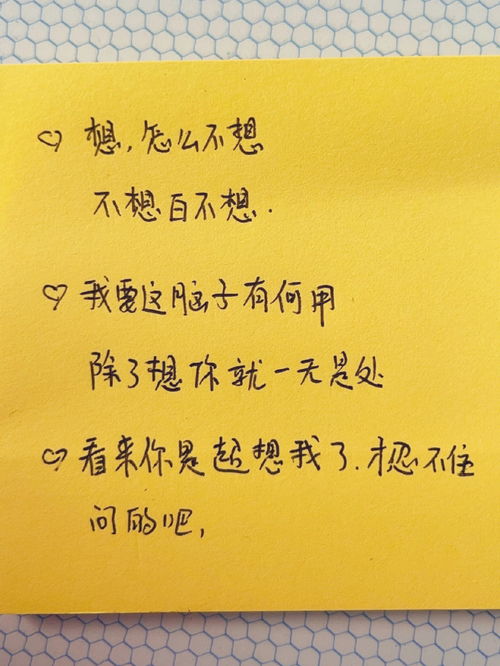 ♡ 想,怎么不想
不想白不想.
♡ 我要这脑子有何用
除了想你就一无是处
♡ 看来你是超想我了.才忍不住
问的吧,